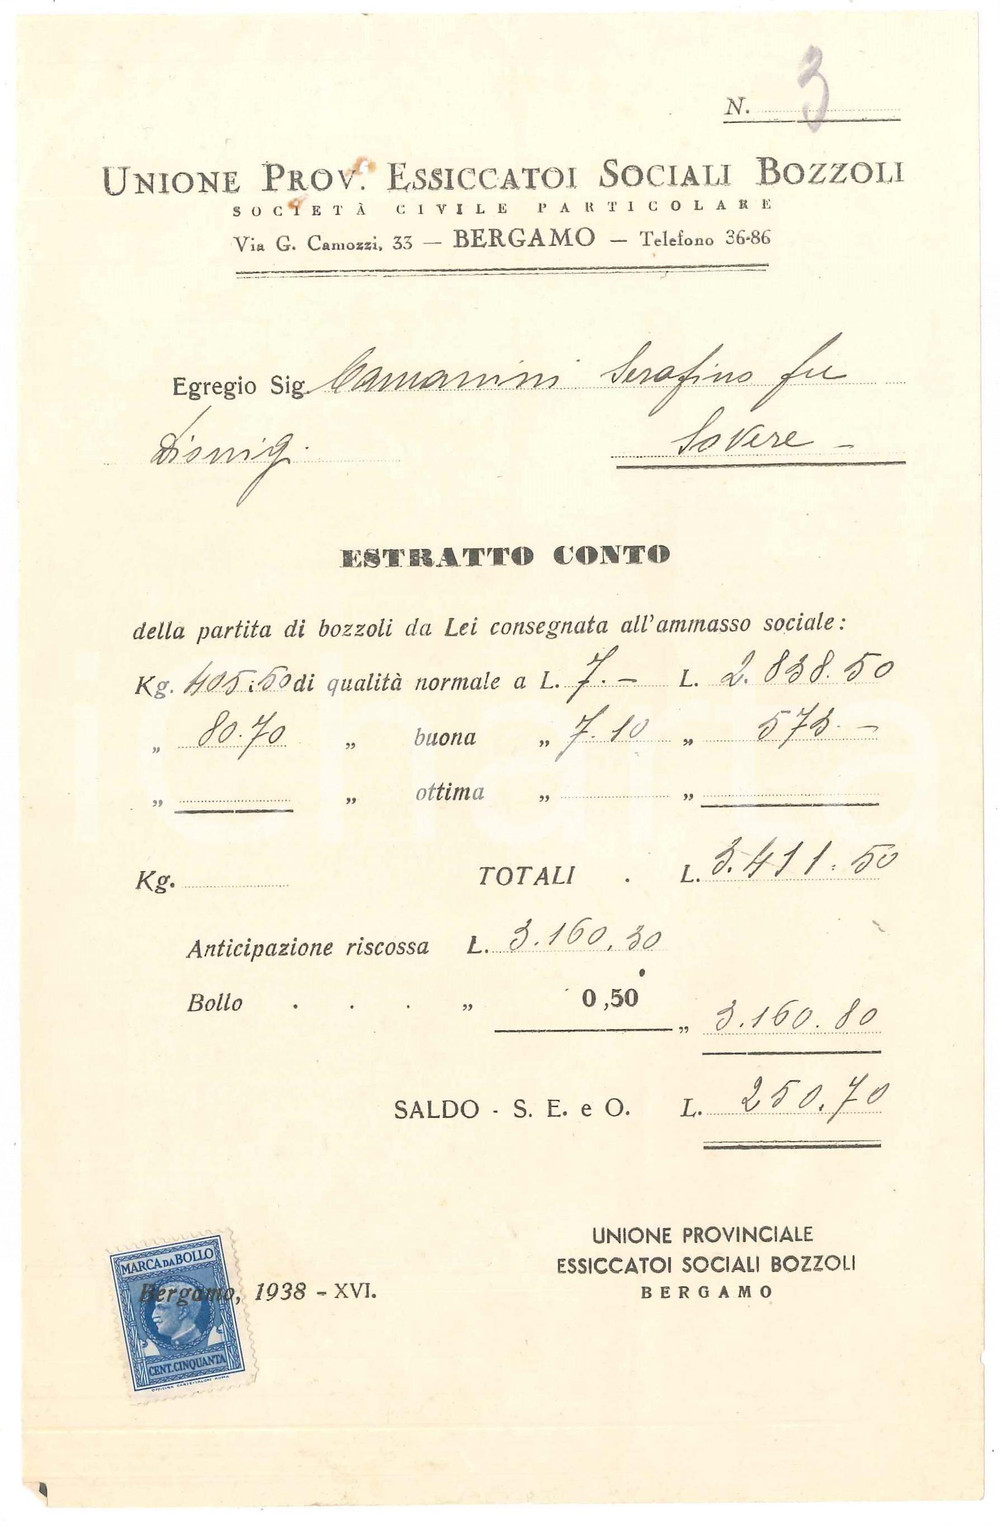 N. 3
UNIONE PROV. ESSICCATOI SOCIALI BOZZOLI
SOCIETÀ CIVILE PARTICOLARE
Via G. Camozzi, 33 — BERGAMO — Telefono 36-86
Egregio Sig. Camanini Serafino fu
Sovere —
ESTRATTO CONTO
della partita di bozzoli da Lei consegnata all'ammasso sociale:
Kg. 405.50 di qualità normale a L. 7.— L. 2.838.50
„ 80.70 „ buona „ 7.10 „ 573.—
„ „ ottima „ „
Kg. TOTALI . L. 3.411.50
Anticipazione riscossa L. 3.160,30
Bollo . . . „ 0,50 „ 3.160.80
SALDO - S. E. e O. L. 250,70
UNIONE PROVINCIALE
ESSICCATOI SOCIALI BOZZOLI
BERGAMO
MARCA DA BOLLO
Bergamo, 1938 - XVI.
CENT. CINQUANTA